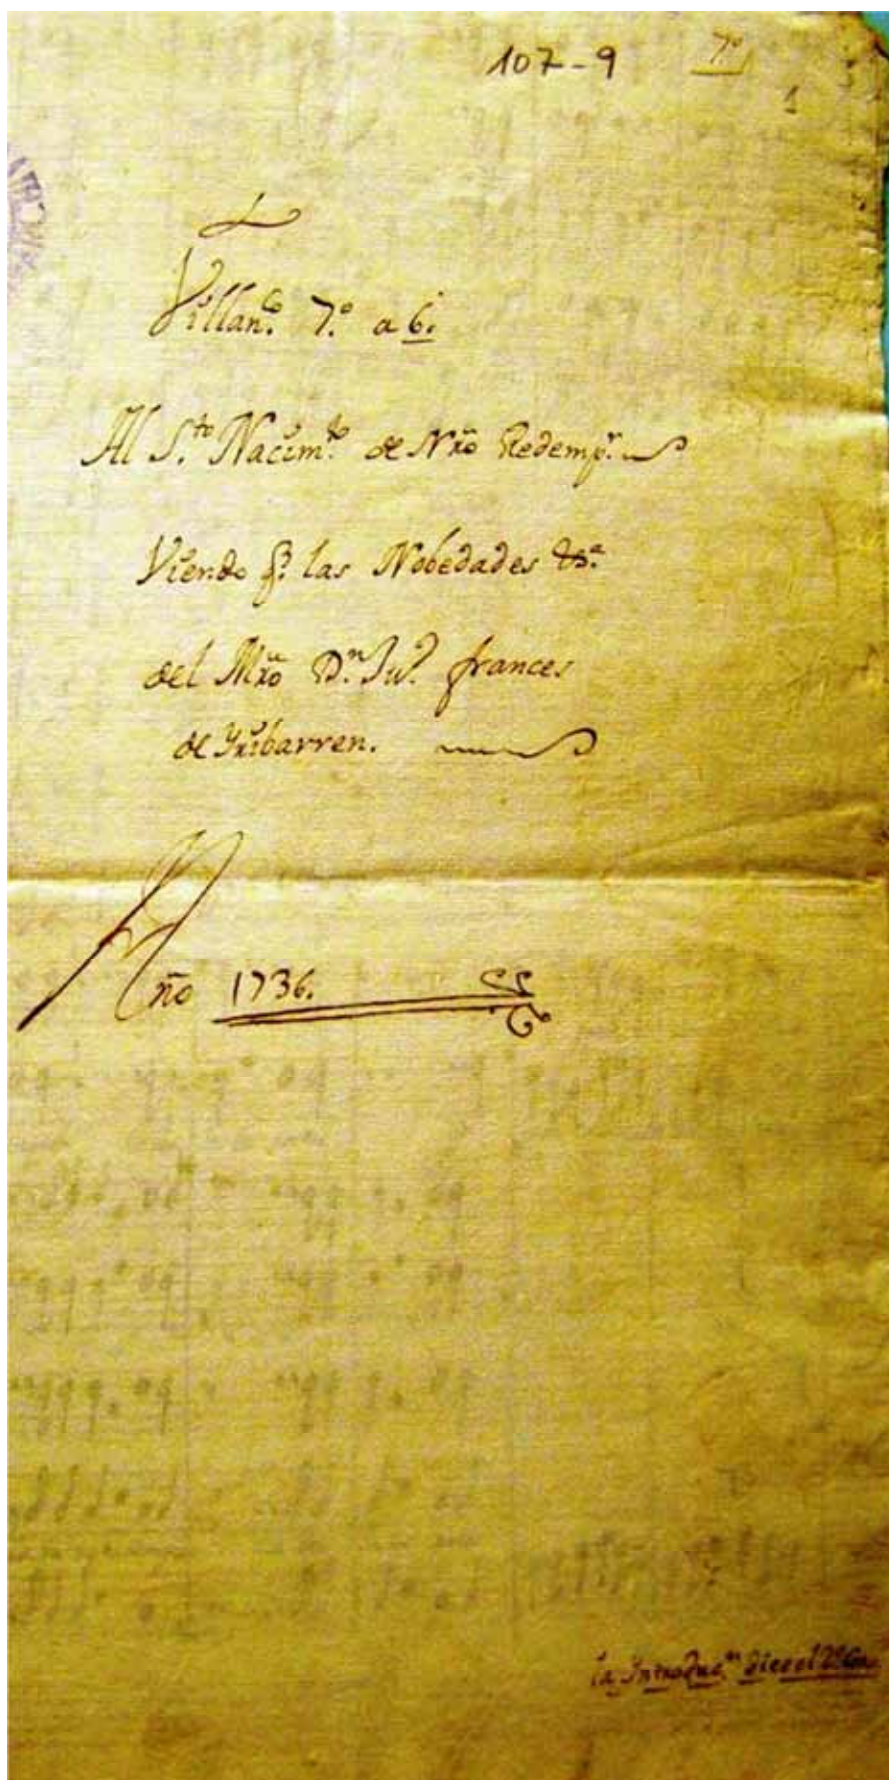 107-9 7º
1
Villanco. 7º. a 6.
Al S.to Nacim.to de Nrõ Redemp.r
Viendo q.e las Nobedades &.a
del Mrõ D.n Ju.º frances
de Yribarren.
Año 1736.
la Introduc.on dice el